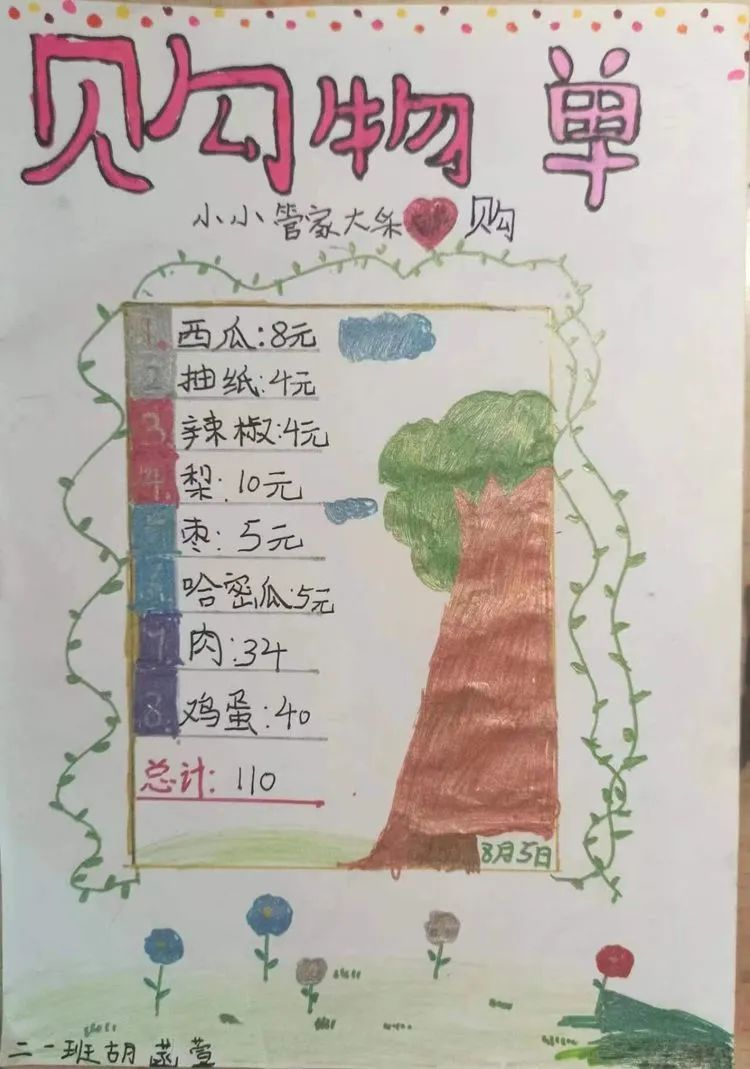 购物单
小小管家大采购
1. 西瓜:8元
2 抽纸:4元
3. 辣椒:4元
4. 梨:10元
5 枣:5元
6 哈密瓜:5元
7. 肉:34
8. 鸡蛋:40
总计:110
8月5日
二一班胡菡萱